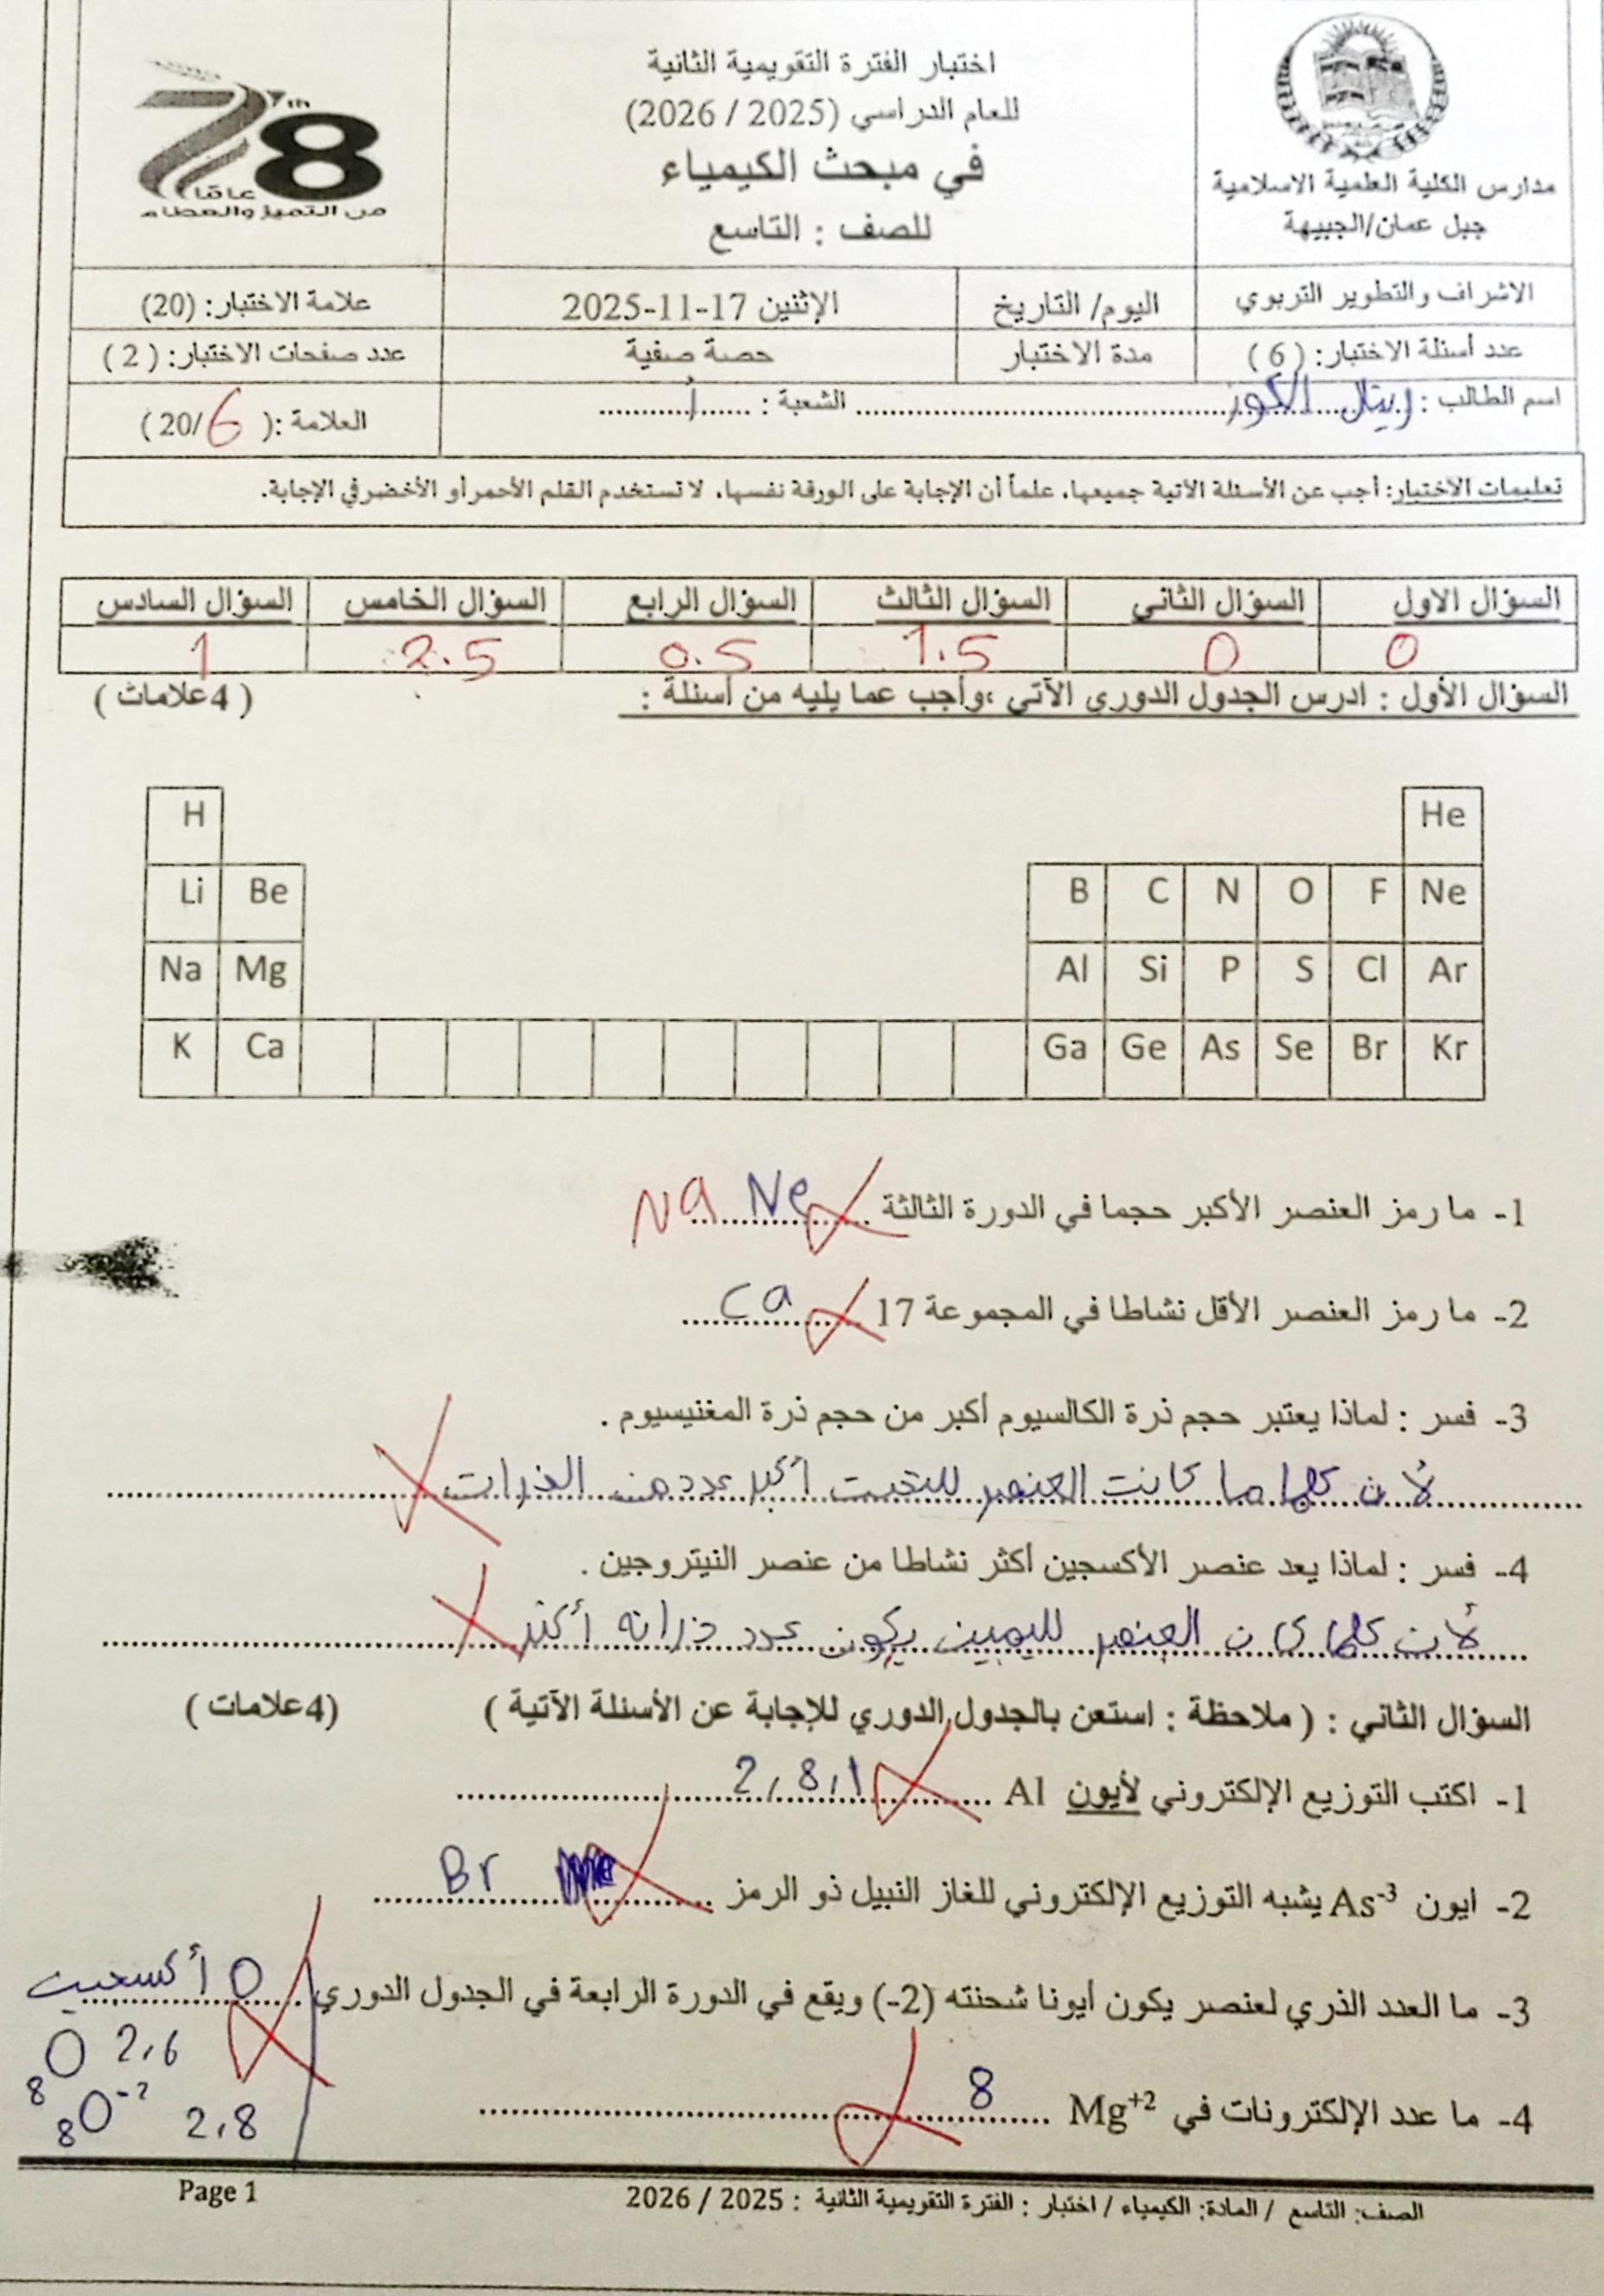 مدارس الكلية العلمية الاسلامية
جبل عمان/الجبيهة
اختبار الفترة التقويمية الثانية
للعام الدراسي (2025 / 2026)
في مبحث الكيمياء
للصف : التاسع
78th
عاماً
من التميز والعطاء
الاشراف والتطوير التربوي
اليوم/ التاريخ
الإثنين 17-11-2025
علامة الاختبار: (20)
عدد أسئلة الاختبار: ( 6 )
مدة الاختبار
حصة صفية
عدد صفحات الاختبار: ( 2 )
اسم الطالب : ريتال الكوز الشعبة : أ
العلامة :( 6/20 )
تعليمات الاختبار: أجب عن الأسئلة الآتية جميعها، علماً أن الإجابة على الورقة نفسها، لا تستخدم القلم الأحمر أو الأخضر في الإجابة.
السؤال الاول السؤال الثاني السؤال الثالث السؤال الرابع السؤال الخامس السؤال السادس
0 0 1.5 0.5 2.5 1
السؤال الأول : ادرس الجدول الدوري الآتي ،وأجب عما يليه من أسئلة : ( 4علامات )
H He
Li Be B C N O F Ne
Na Mg Al Si P S Cl Ar
K Ca Ga Ge As Se Br Kr
1- ما رمز العنصر الأكبر حجما في الدورة الثالثة Ne Na
2- ما رمز العنصر الأقل نشاطا في المجموعة 17 Ca
3- فسر : لماذا يعتبر حجم ذرة الكالسيوم أكبر من حجم ذرة المغنيسيوم .
لأن كلما ما كانت العنصر للتحت أكبر عدد من الذرات
4- فسر : لماذا يعد عنصر الأكسجين أكثر نشاطا من عنصر النيتروجين .
لأن كلما كان العنصر لليمين يكون عدد ذراته أكثر
السؤال الثاني : ( ملاحظة : استعن بالجدول الدوري للإجابة عن الأسئلة الآتية ) (4علامات )
1- اكتب التوزيع الإلكتروني لأيون Al 2,8,1
2- ايون As-3 يشبه التوزيع الإلكتروني للغاز النبيل ذو الرمز Br
3- ما العدد الذري لعنصر يكون أيونا شحنته (2-) ويقع في الدورة الرابعة في الجدول الدوري O أكسجين
8O 2,6
8O-2 2,8
4- ما عدد الإلكترونات في Mg+2 8
الصف: التاسع / المادة: الكيمياء / اختبار : الفترة التقويمية الثانية : 2025 / 2026
Page 1